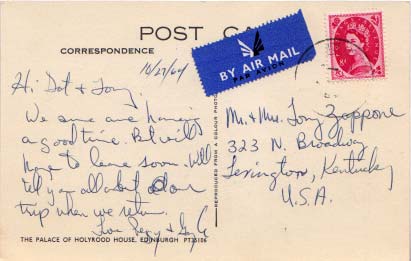 POST CARD
CORRESPONDENCE
BY AIR MAIL
PAR AVION
10/27/64
Hi Dot & Tony,
We sure are having
a good time. But will
have to leave soon. Will
tell you all about our
trip when we return.
Love Peggy &
Mr. & Mrs. Tony Zappone
323 N. Broadway
Lexington, Kentucky
U.S.A.
REPRODUCED FROM A COLOUR PHOTO
THE PALACE OF HOLYROOD HOUSE, EDINBURGH PT35106